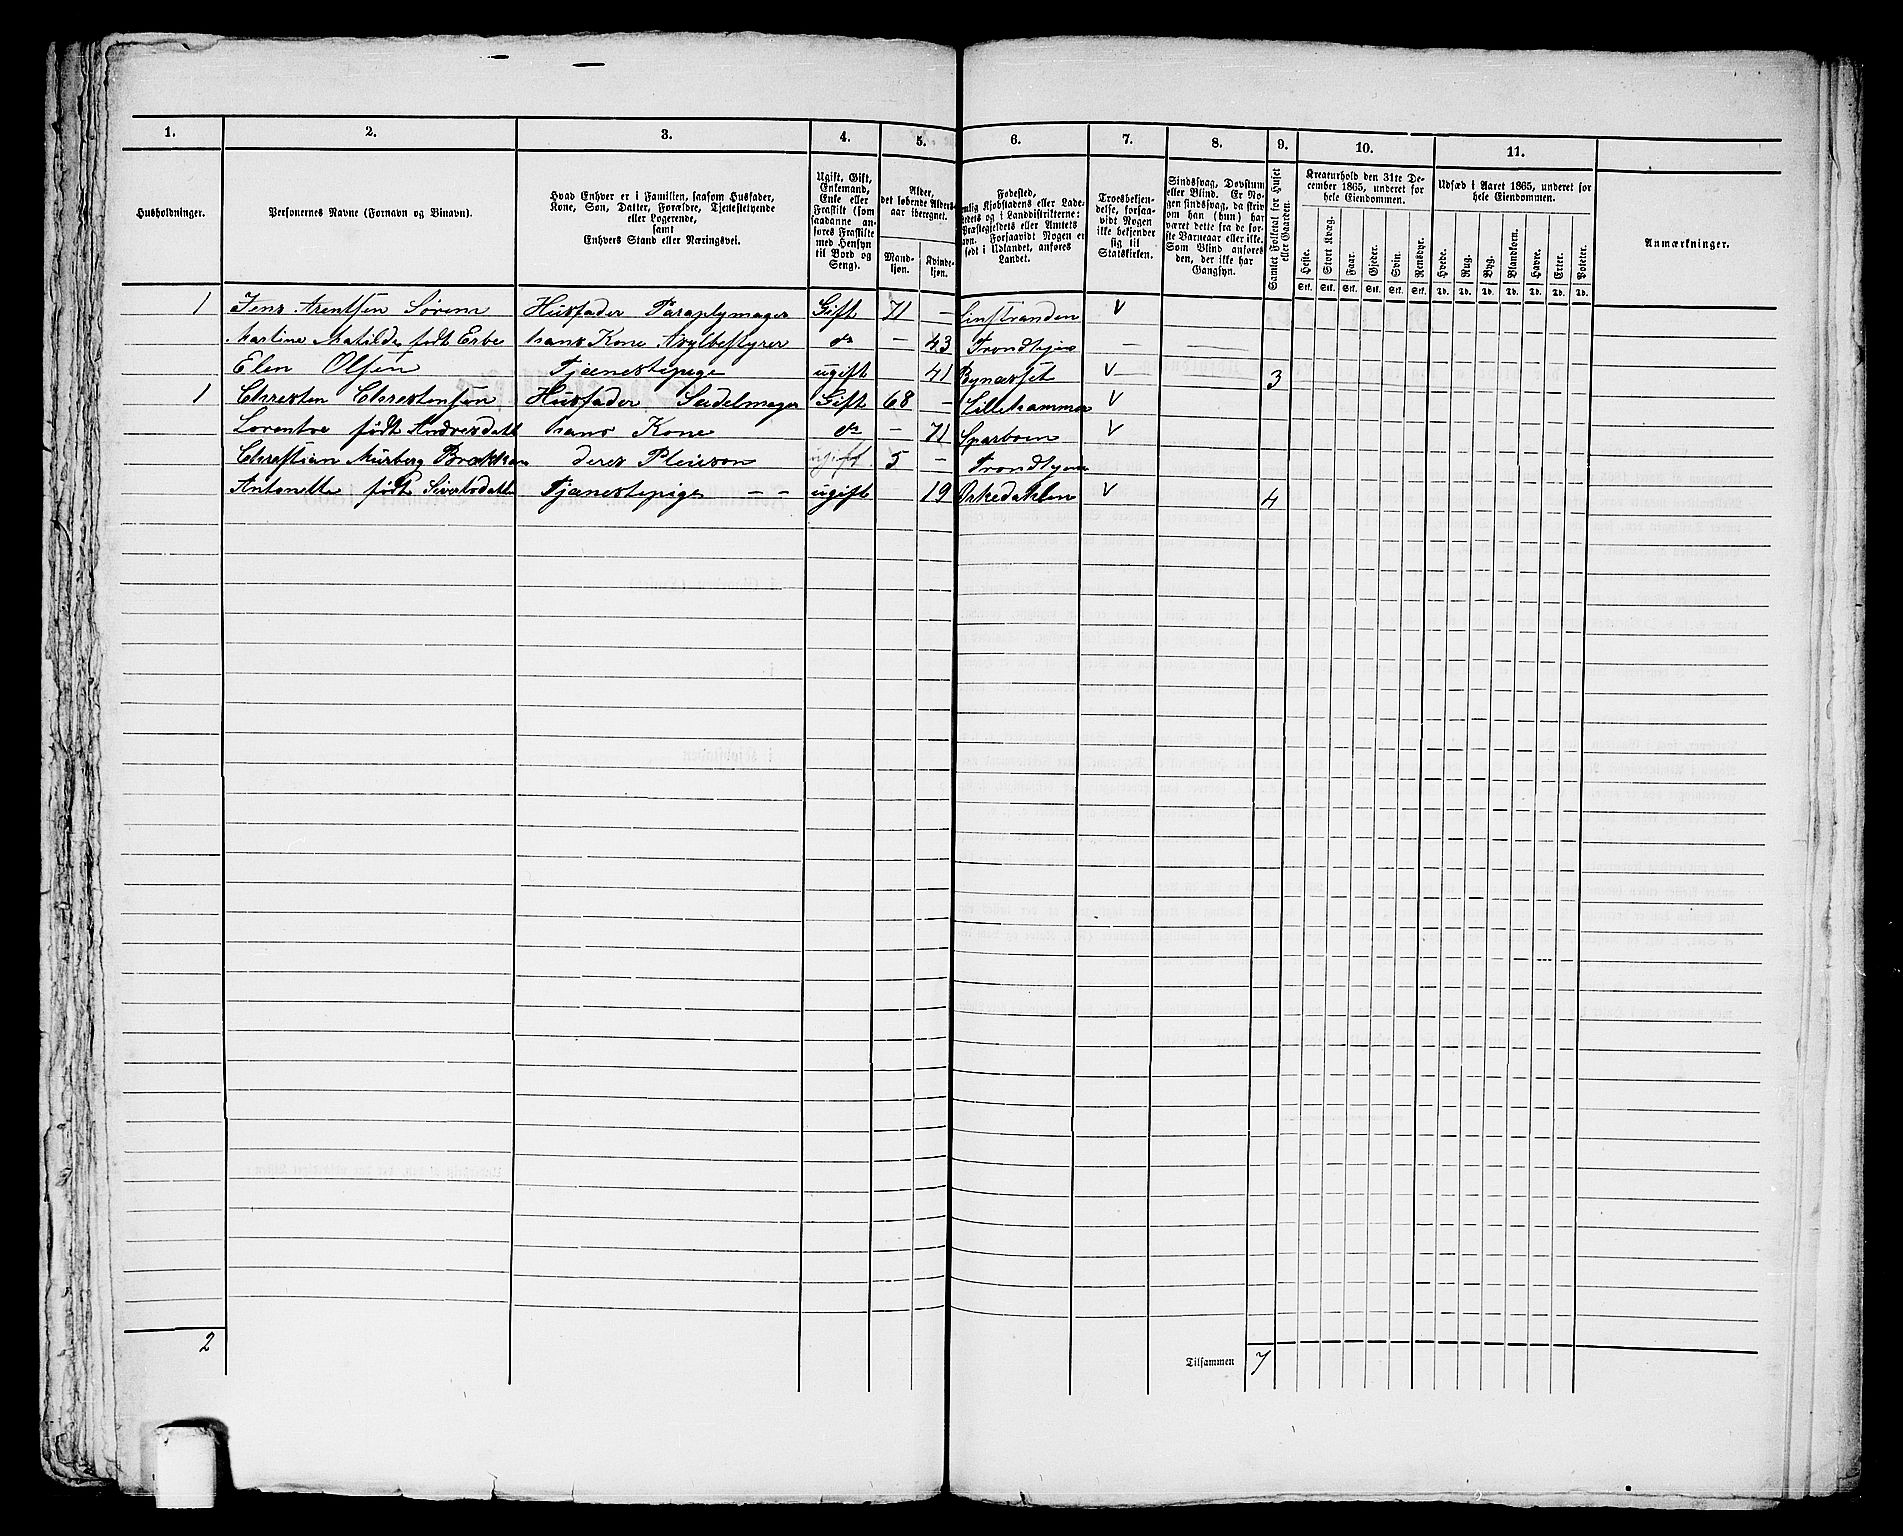 1. 2. 3. 4. 5. 6. 7. 8. 9. 10. 11.
Husholdninger.
Personernes Navne (Fornavn og Binavn).
Hvad Enhver er i Familien, saasom Husfader,
Kone, Søn, Datter, Forældre, Tjenestetyende
eller Logerende,
samt
Enhvers Stand eller Næringsvei.
Ugift, Gift,
Enkemand,
Enke eller
Fraskilt (som
saadanne an-
føres Fraskilte
med Hensyn
til Bord og
Seng).
Alder,
det løbende Alders-
aar iberegnet.
Mand-
kjøn.
Kvinde-
kjøn.
Fødested,
Kjøbstadens eller Lade-
og i Landdistrikterne:
Præstegjeldets eller Amtets
Forsaavidt Nogen er
født i Udlandet, anføres
Landet.
Troesbekjen-
delse, forsaa-
vidt Nogen
ikke bekjender
sig til
Statskirken.
Sindssvag, Døvstum
eller Blind. Er No-
gen sindssvag, da skriv
om han (hun) har
været dette fra de før-
ste Barneaar eller ikke.
Som Blind anføres
den, der ikke har
Gangsyn.
Samlet Folketal for Huset
eller Gaarden.
Kreaturhold den 31te De-
cember 1865, underet for
hele Eiendommen.
Heste. Stort Kvæg. Faar. Gjeder. Svin. Rensdyr.
Stk. Stk. Stk. Stk. Stk. Stk.
Udsæd i Aaret 1865, underet for
hele Eiendommen.
Hvede. Rug. Byg. Blandkorn. Havre. Erter. Poteter.
Td. Td. Td. Td. Td. Td. Td.
Anmærkninger.
1 Jens Arentsen Sørem Husfader Paraplymager Gift 71 — V
Marline Matilde født Erbe hans Kone Asylbestyrer do — 43 Trondhjem — —
Elen Olsen Tjenestepige ugift 41 Bynæsset V 3
1 Christen Christensen Husfader Sadelmager Gift 68 — Lillehammer V
født Andresdatt hans Kone do — 71 Sparboen V
Christian Murberg Brækkan deres Pleiesøn ugift 5 — Trondhjem
Antonette født Sivertsdatter Tjænestepige — — ugift 19 Orkedahlen V 4
2
Tilsammen 7